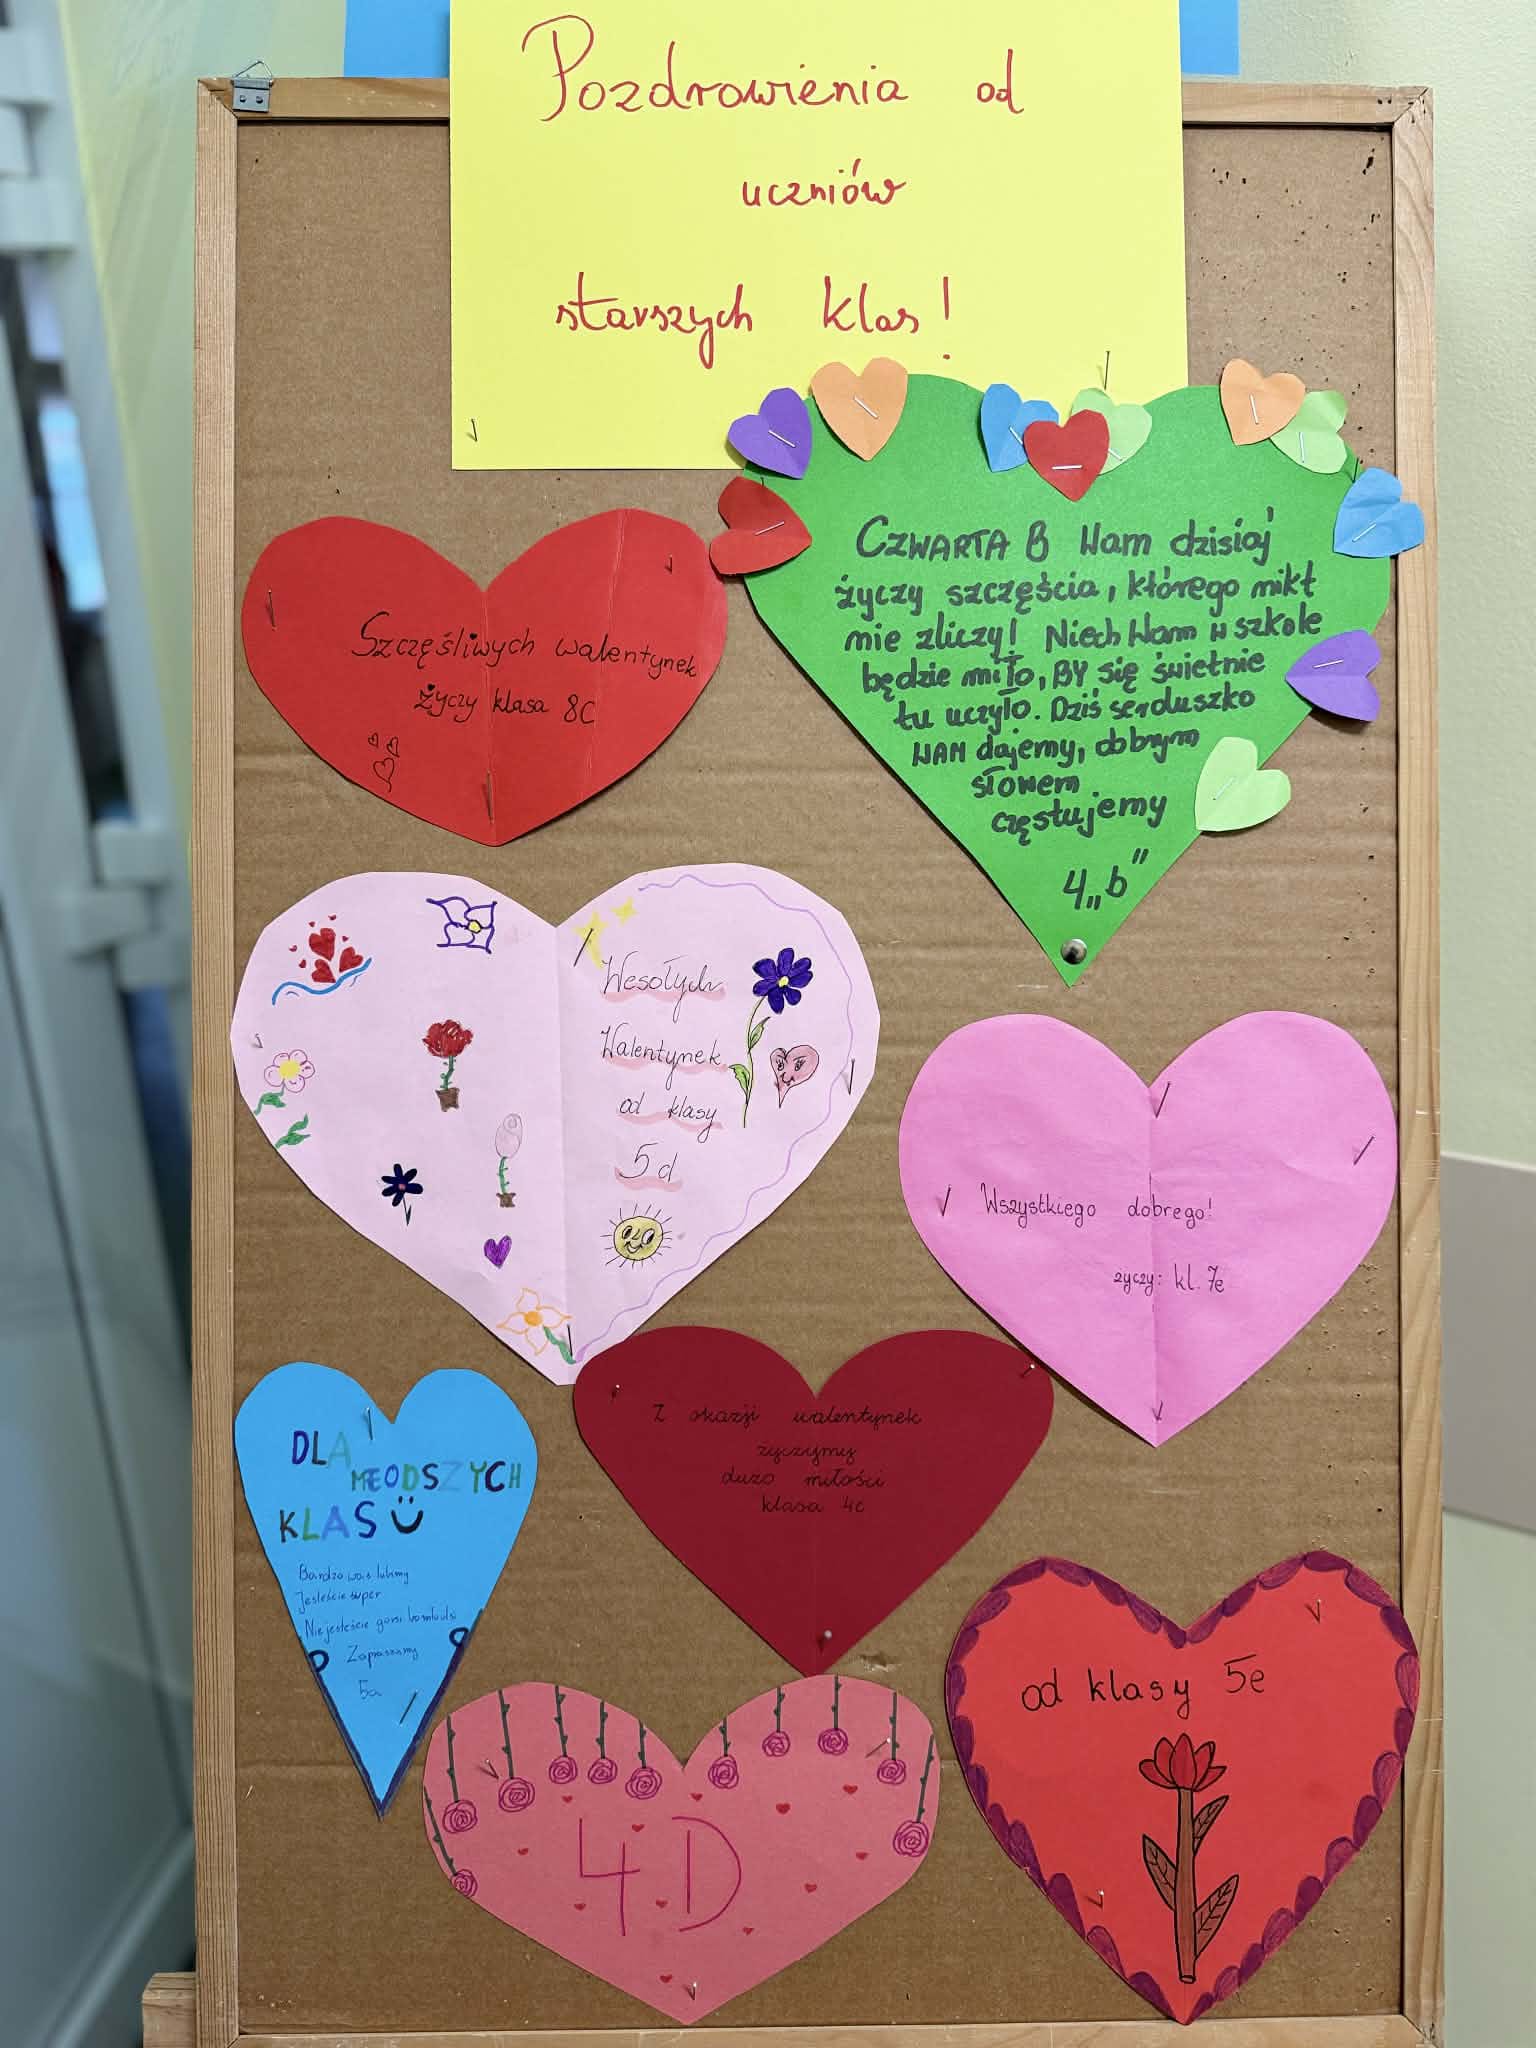 Pozdrowienia od
uczniów
starszych klas!
Szczęśliwych walentynek
życzy klasa 8C
CZWARTA B Wam dzisiaj
życzy szczęścia, którego nikt
nie zliczy! Niech Wam w szkole
będzie miło, BY się świetnie
tu uczyło. Dziś serduszko
WAM dajemy, dobrym
słowem
częstujemy
4„b”
Wesołych
Walentynek
od klasy
5d
Wszystkiego dobrego!
życzy: kl. 7e
Z okazji walentynek
życzymy
dużo miłości
klasa 4c
DLA
MŁODSZYCH
KLAS
Bardzo was lubimy
Jesteście super
Nie jesteście gorsi
Zapraszamy
5a
od klasy 5e
4D